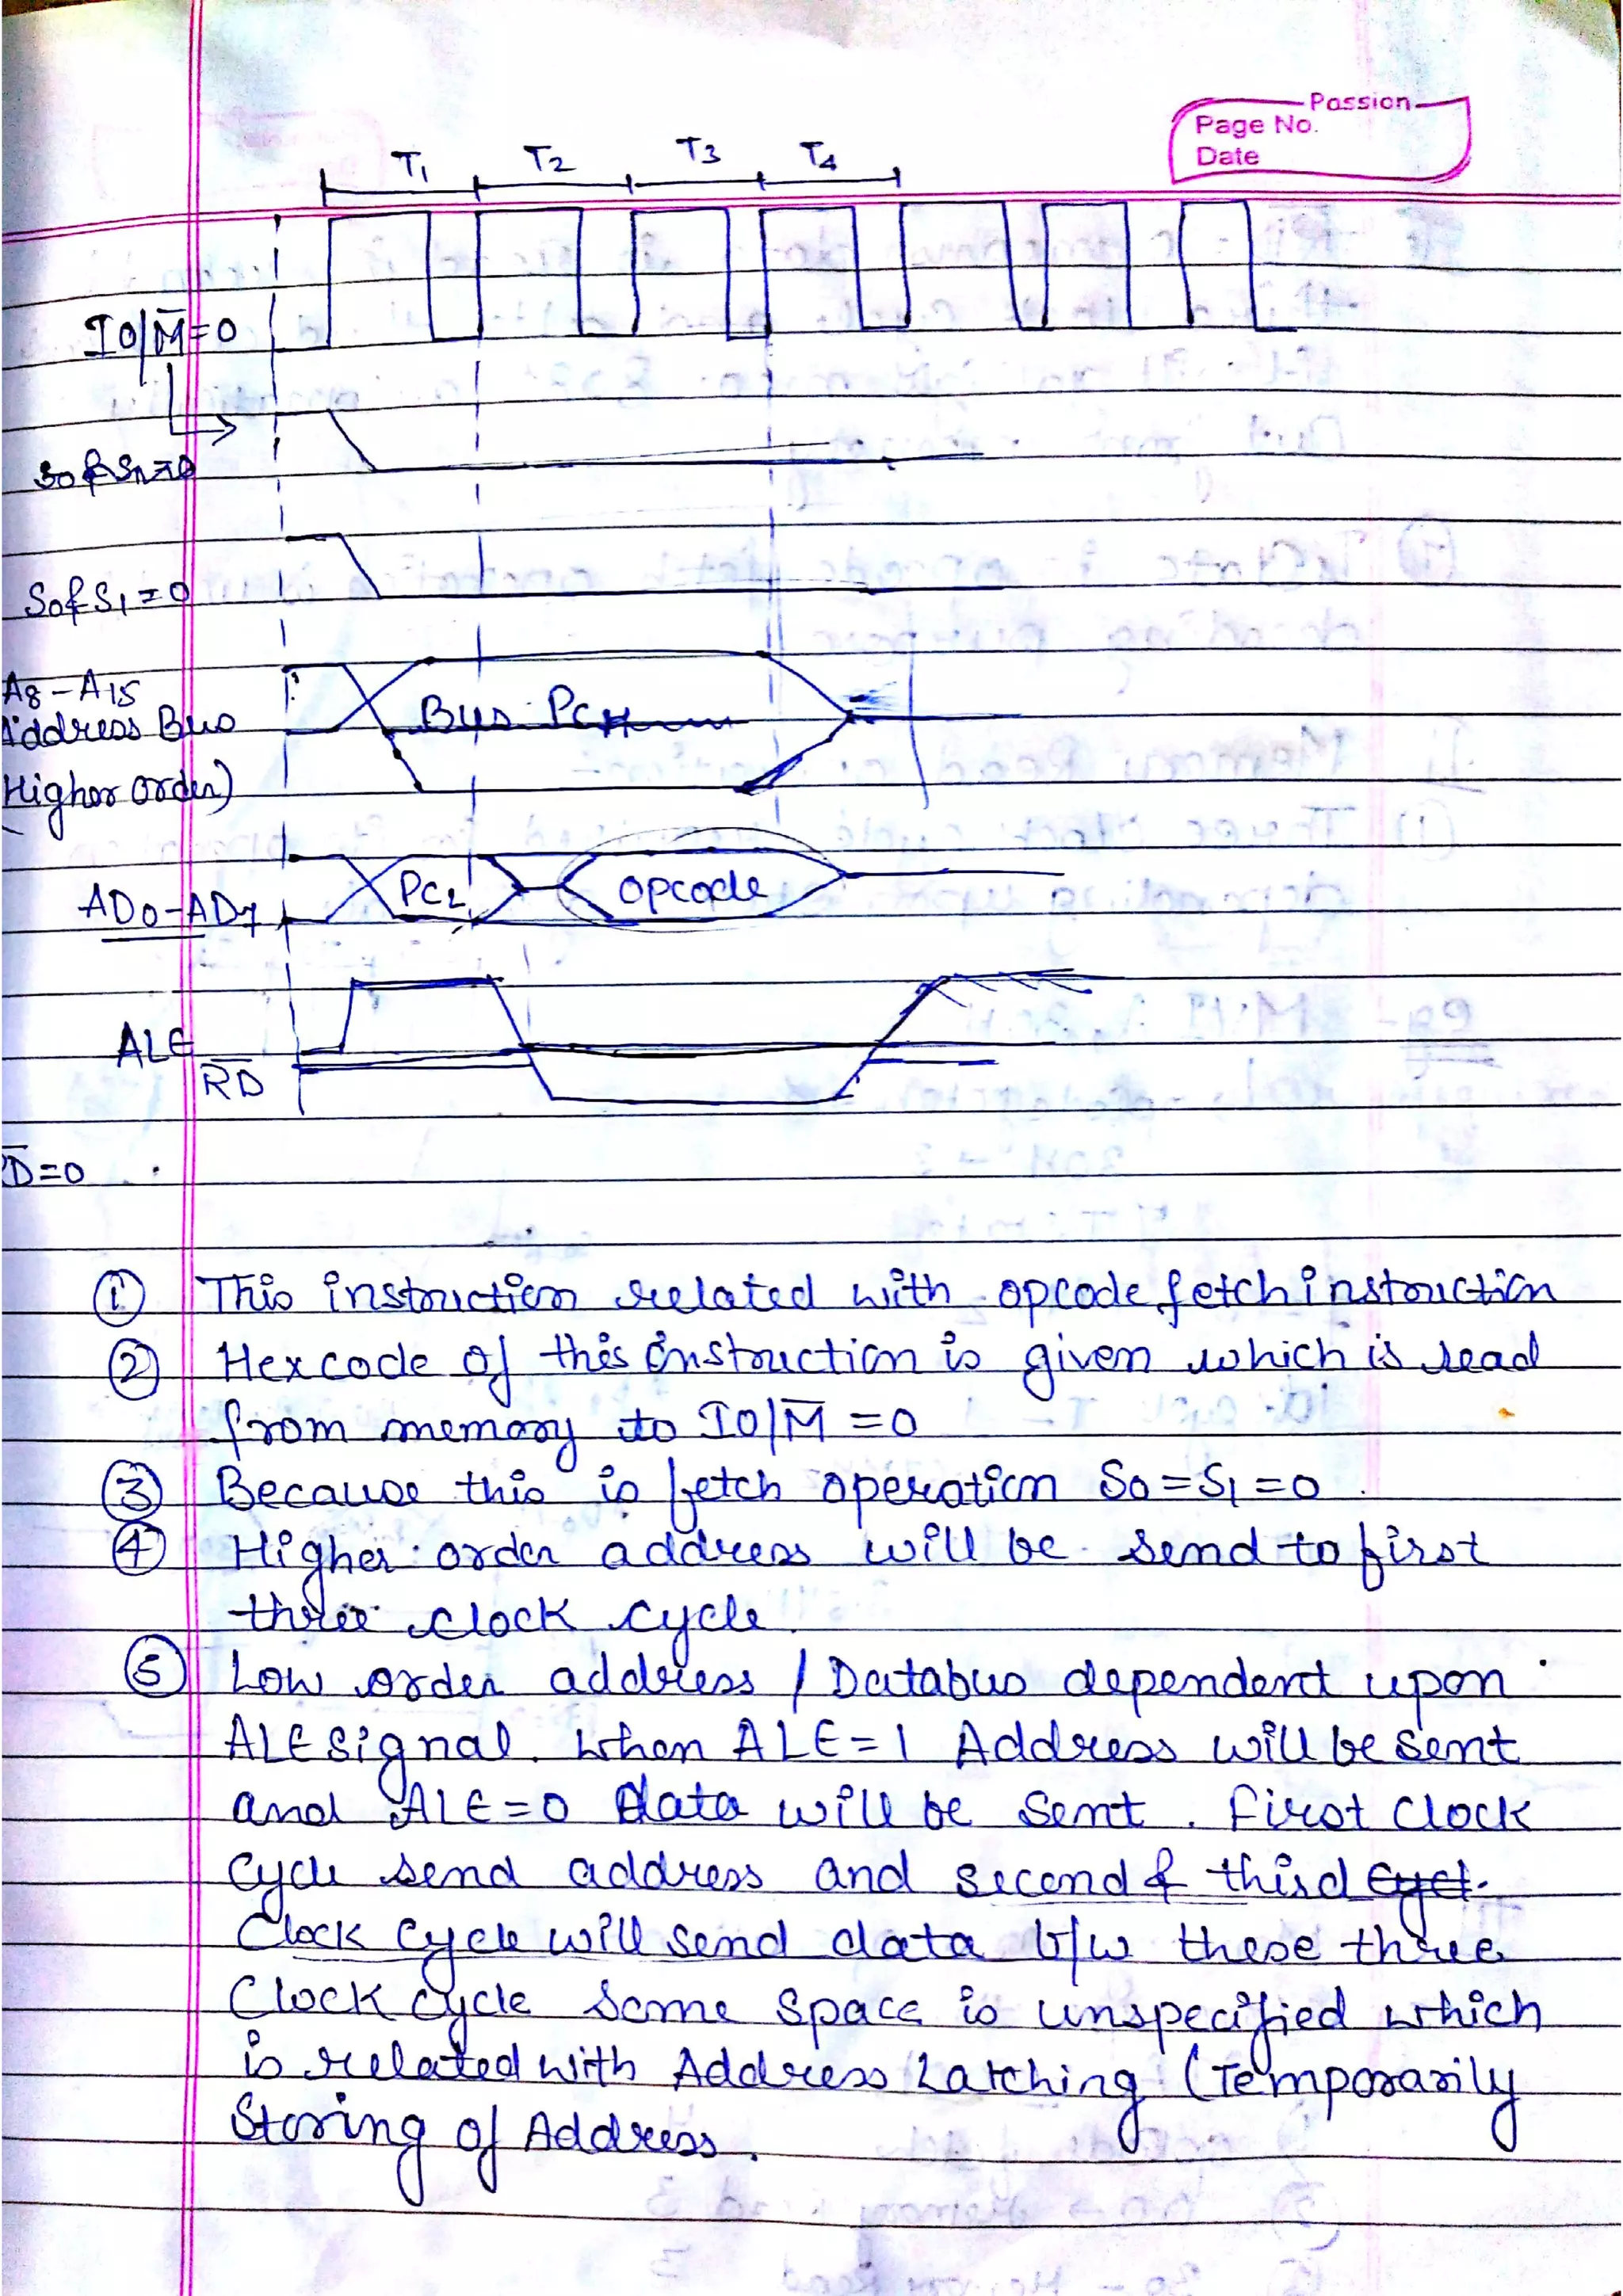 Passion
Page No.
Date
T1 T2 T3 T4
IO/M̅=0
S0 & S1 = 0
A8-A15
Address Bus
Higher order)
Bus PCH
AD0-AD7
PCL
opcode
ALE
R̅D̅
D̅=0
① This instruction related with opcode fetch instruction
② Hexcode of this instruction is given which is read
from memory to IO/M̅ = 0
③ Because this is fetch operation S0=S1=0.
④ Higher order address will be send to first
three clock cycle.
⑤ Low order address / Databus dependent upon
ALE signal. When ALE=1 Address will be sent
and ALE=0 data will be sent. First Clock
cycle send address and second & third
Clock Cycle will send data b/w these three
Clock cycle some space is unspecified which
is related with Address Latching (Temporarily
Storing of Address.